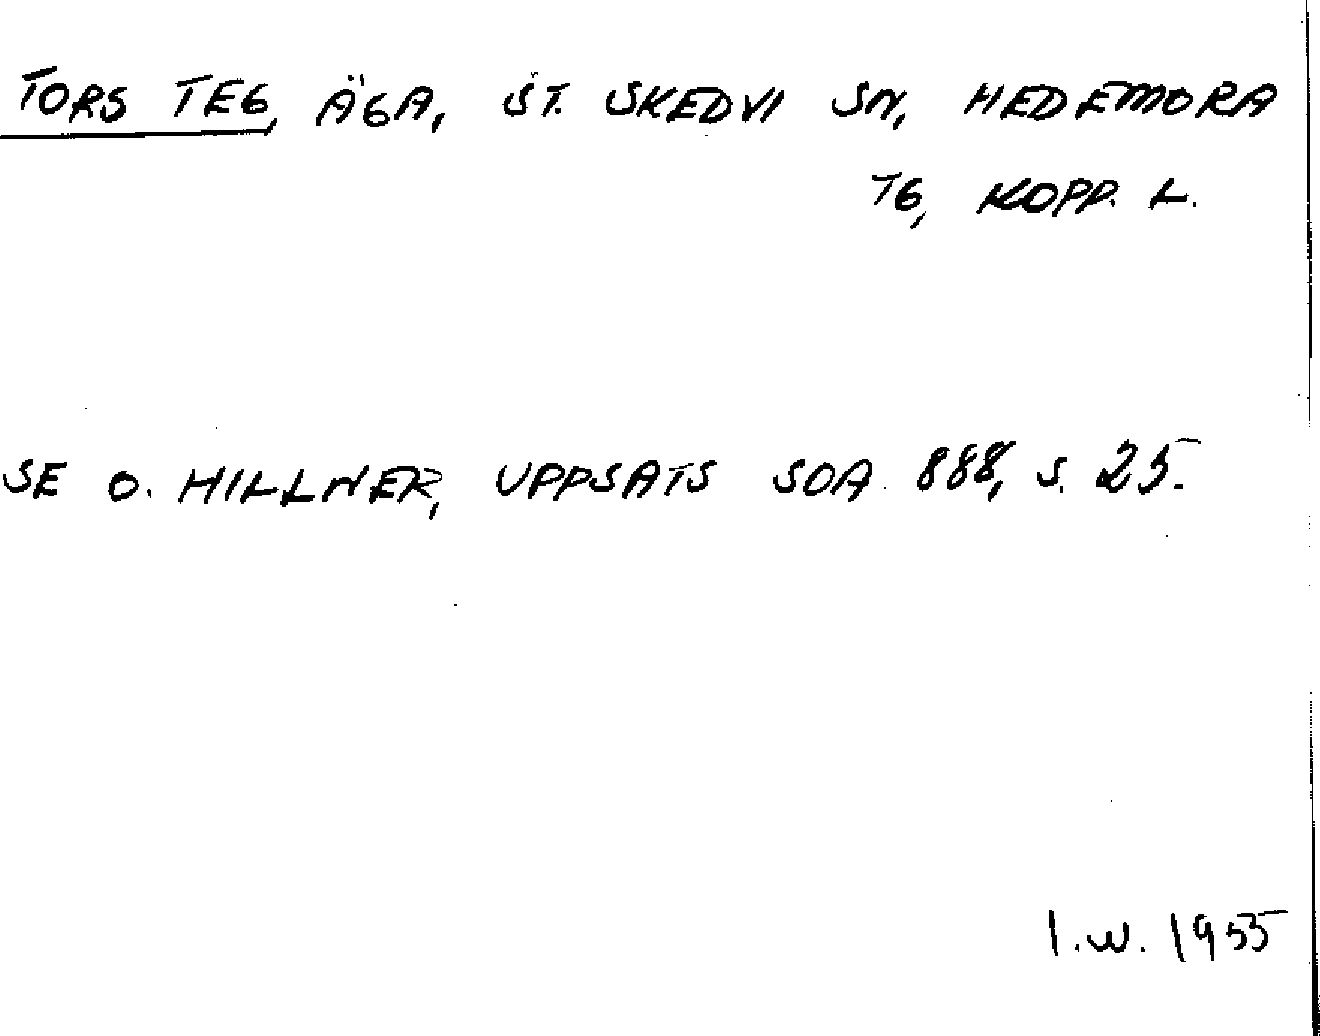 TORS TEG, ÄGA, ST. SKEDVI SN, HEDEMORA
TG, KOPP. L.
SE O. HILLNER, UPPSATS SOA 888, S. 25.
I.W. 1955